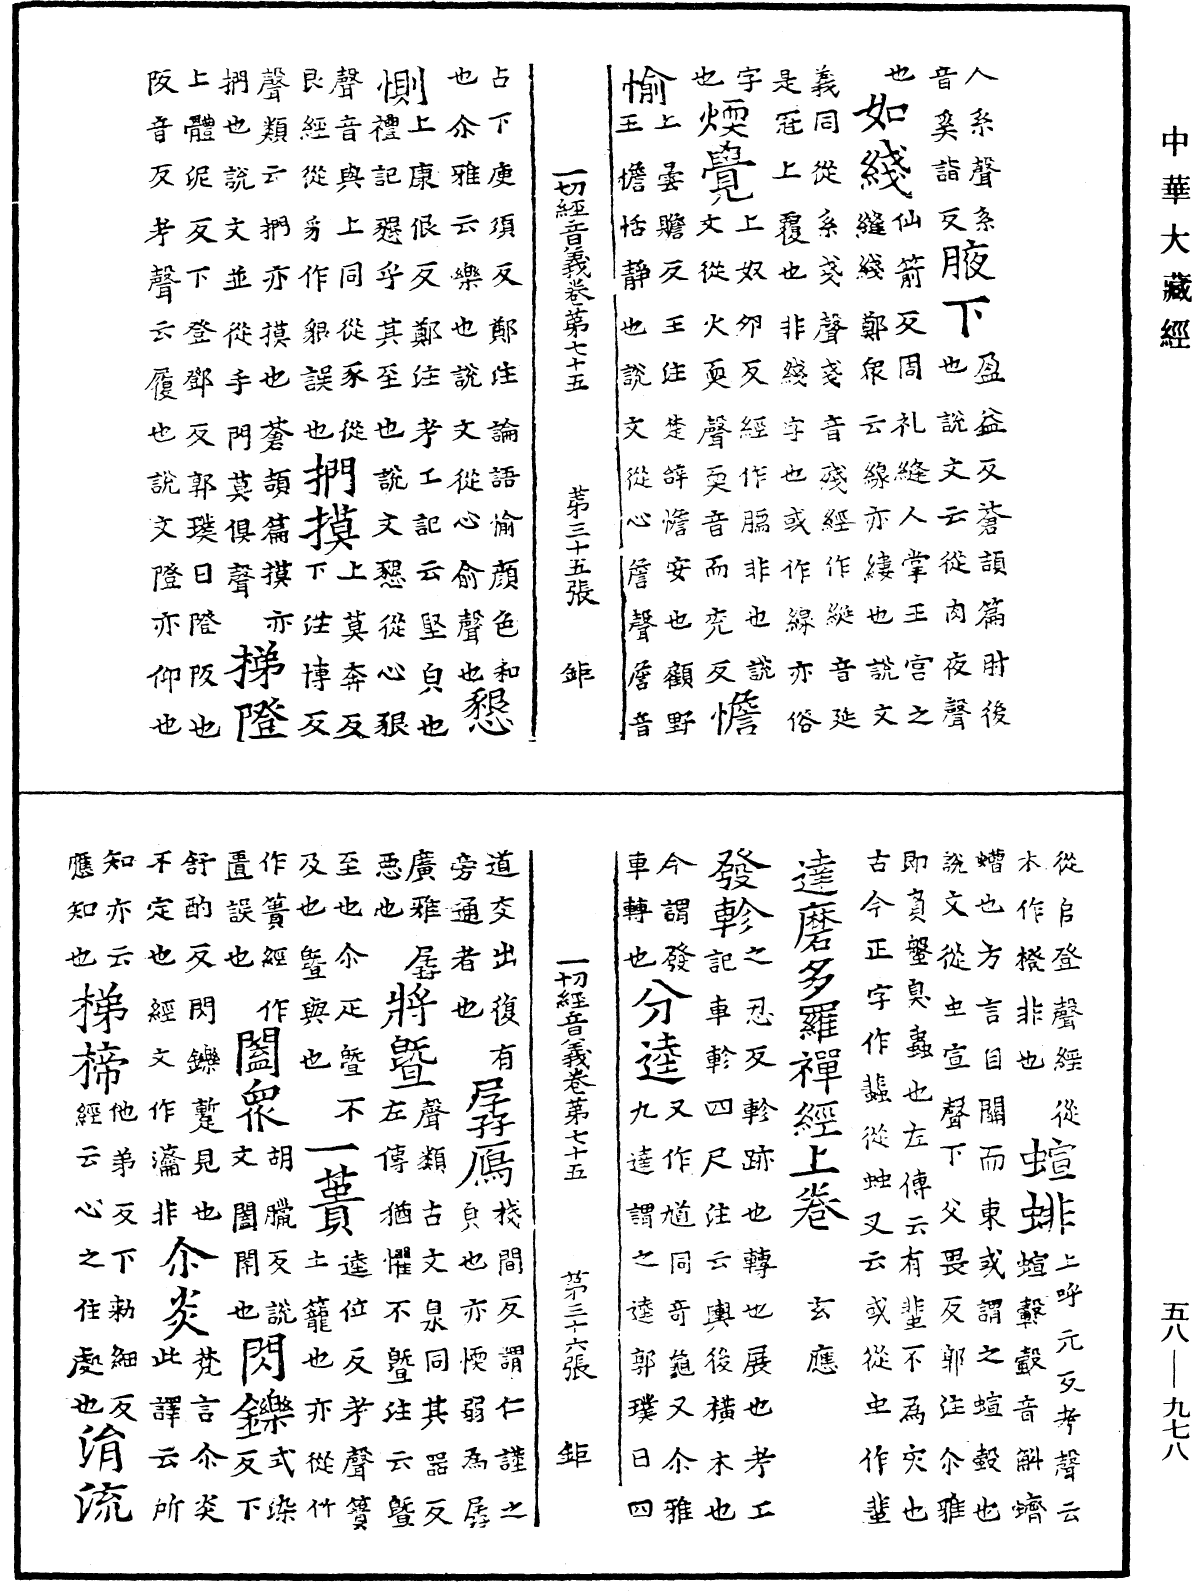 中華大藏經
人系聲系
音奚詣反腋下盈益反蒼頡篇肘後
也說文云從肉夜聲
也如綫仙箭反周礼縫人掌王宮之
縫綫鄭衆云線亦縷也說文
義同從糸戔聲戔音殘經作綖音延
是冠上覆也非綫字也或作線亦俗
字煗覺上奴卯反經作腝非也說
也文從火耎聲耎音而兖反憺
愉上曇贍反王注楚辞憺安也顧野
王憺恬静也說文從心詹聲詹音
一切經音義卷第七十五　第三十五張　鉅
占下庾須反鄭注論語愉顔色和
也尒雅云樂也說文從心俞聲也懇
惻上康佷反鄭注考工記云堅皃也
禮記懇乎其至也說文懇從心豤
聲音與上同從豕從
艮經從豸作貇誤也捫摸上莫奔反
下注博反
聲類云捫亦摸也蒼頡篇摸亦
捫也說文並從手門莫俱聲梯隥
上體泥反下登鄧反郭璞曰隥阪也
阪音反考聲云履也說文隥亦仰也
從𨸏登聲經從
木作橙非也蝖蜚上呼元反考聲云
蝖蠐螜音斛蠐
螬也方言自關而東或謂之蝖螜也
說文從虫宣聲下父畏反郭注尒雅
即負盤臭蟲也左傳云有蜚不為灾也
古今正字作蜚從䖵又云或從虫作蜚
達磨多羅禪經上卷　玄應
發軫之忍反軫跡也轉也展也考工
記車軫四尺注云輿後橫木也
今謂發
車轉也分逵又作馗同奇龜反尒雅
九達謂之逵郭璞曰四
一切經音義卷第七十五　第三十六張　鉅
道交出復有
旁通者也孱焉棧間反謂仁謹之
皃也亦愞弱為孱
廣雅孱
惡也將曁聲類古文泉同其器反
左傳猶懼不曁注云曁
至也尒疋曁不
及也曁與也一蕢逵位反考聲簣
土籠也亦從竹
作簣經作
匱誤也闔衆胡臘反說
文闔閉也閃鑠式染
反下
舒酌反閃鑠蹔見也
不定也經文作瀹非尒炎梵言尒炎
此譯云所
知亦云
應知也梯㮛他弟反下勑細反
經云心之住處也㳙流
五八—九七八